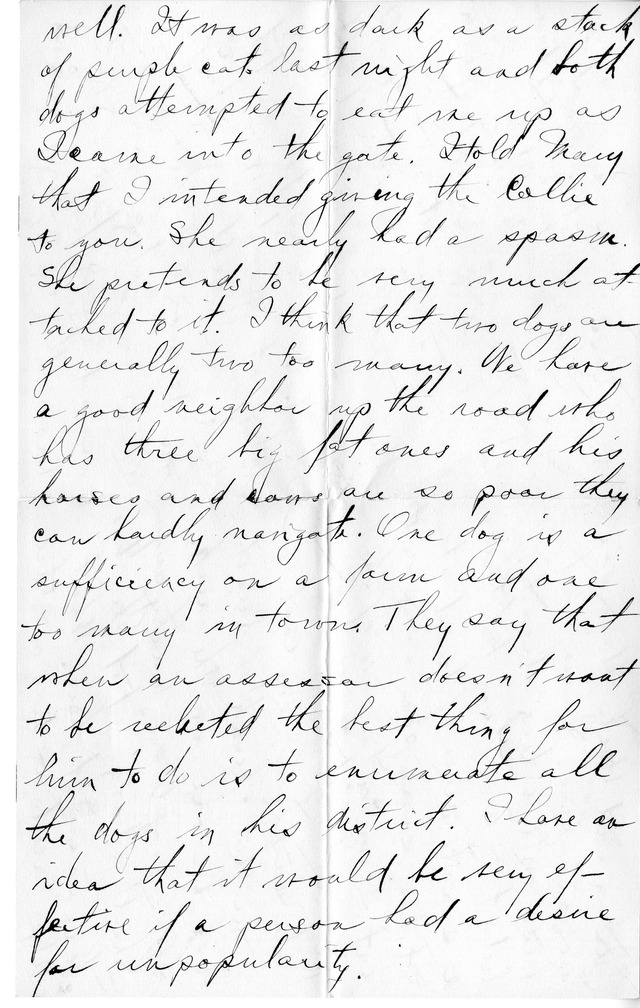 well. It was as dark as a stack
of purple cats last night and both
dogs attempted to eat me up as
I came into the gate. I told Mary
that I intended giving the Collie
to you. She nearly had a spasm.
She pretends to be very much at-
tached to it. I think that two dogs are
generally two too many. We have
a good neighbor up the road who
has three big fat ones and his
horses and cows are so poor they
can hardly navigate. One dog is a
sufficiency on a farm and one
too many in town. They say that
when an assessor doesn't want
to be reelected the best thing for
him to do is to enumerate all
the dogs in his district. I have an
idea that it would be very ef-
fective if a person had a desire
for unpopularity.